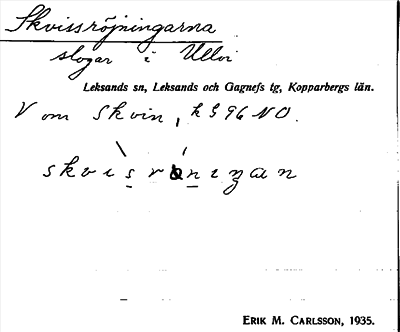 Skvissröjningarna
slogar i Ullvi
Leksands sn, Leksands och Gagnefs tg, Kopparbergs län.
V om Skvin, k S 96 NO.
ERIK M. CARLSSON, 1935.